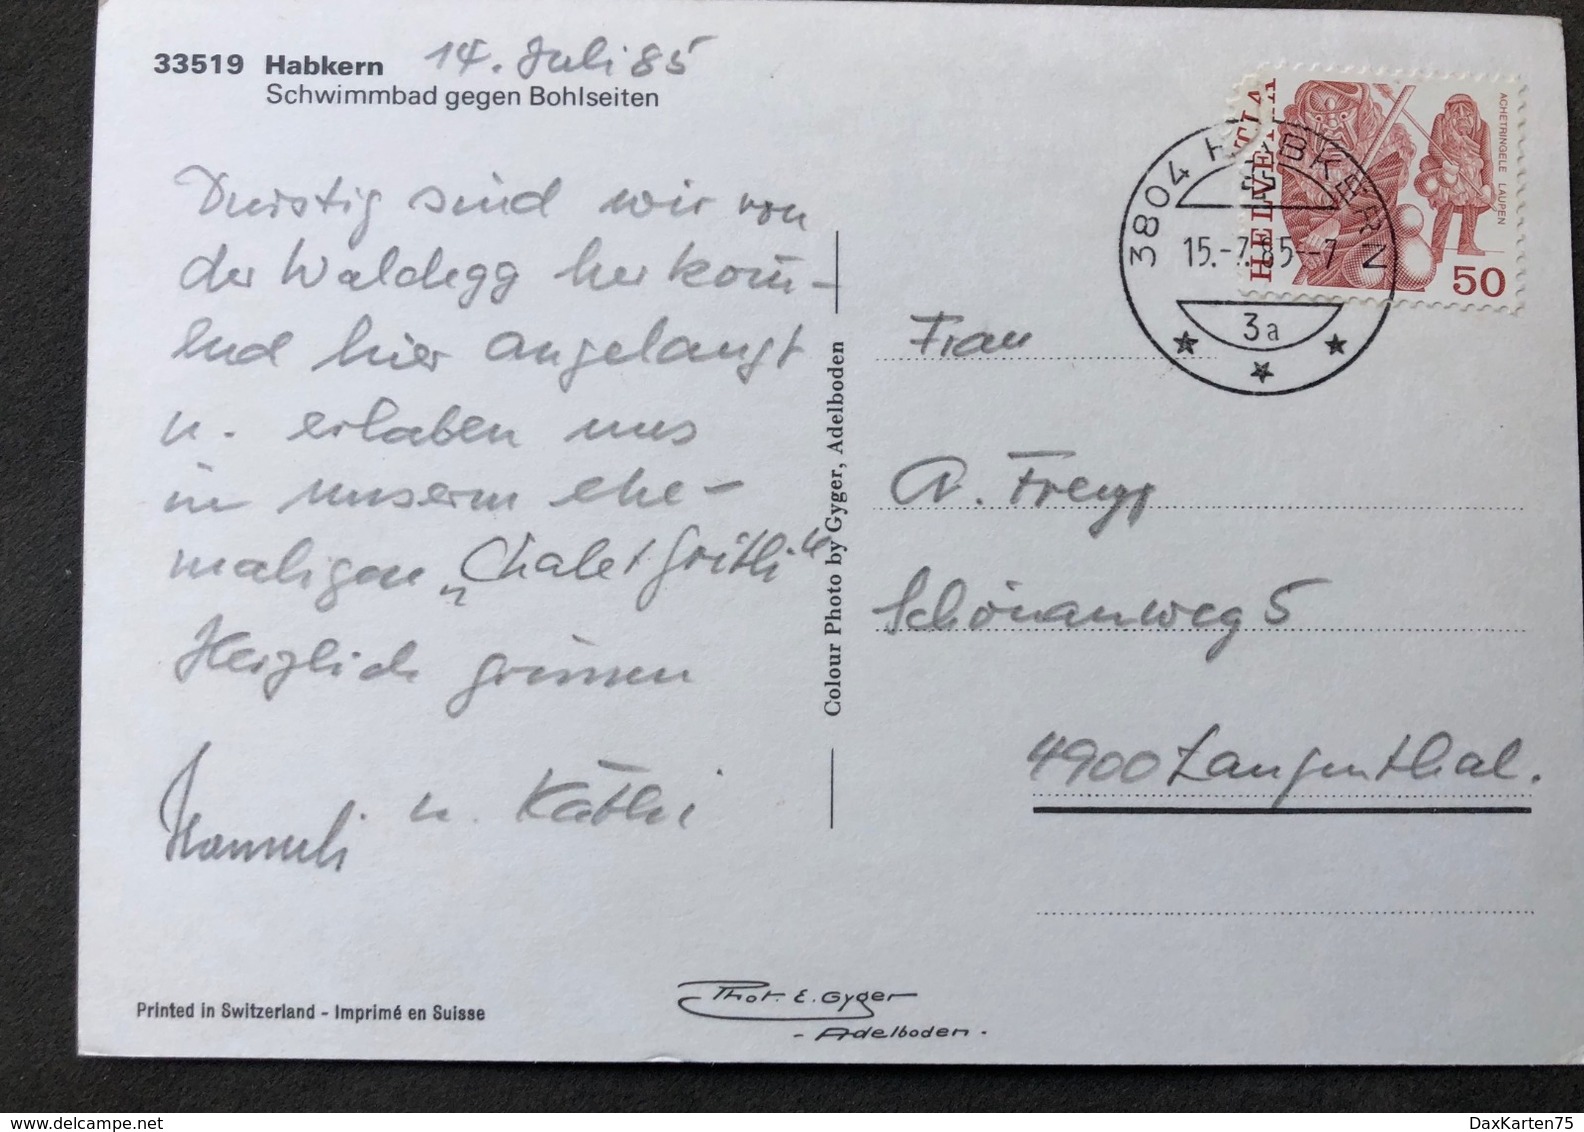 33519 Habkern 14. Juli 85
Schwimmbad gegen Bohlseiten
Durstig sind wir von
der Waldegg her kom-
end hier angelangt
u. erlaben uns
in unserm ehe-
maligen „Chalet Gritli“
Herzlich grüssen
u. Käthi
Colour Photo by Gyger, Adelboden
HELVETIA
ACHETRINGELE LAUPEN
50
3804 HABKERN
15.-7.85--7
3a
Frau
A. Freyy
Schönauweg 5
4900 Langenthal.
Printed in Switzerland - Imprimé en Suisse
Phot. E. Gyger
- Adelboden -
delcampe.net
DaxKarten75